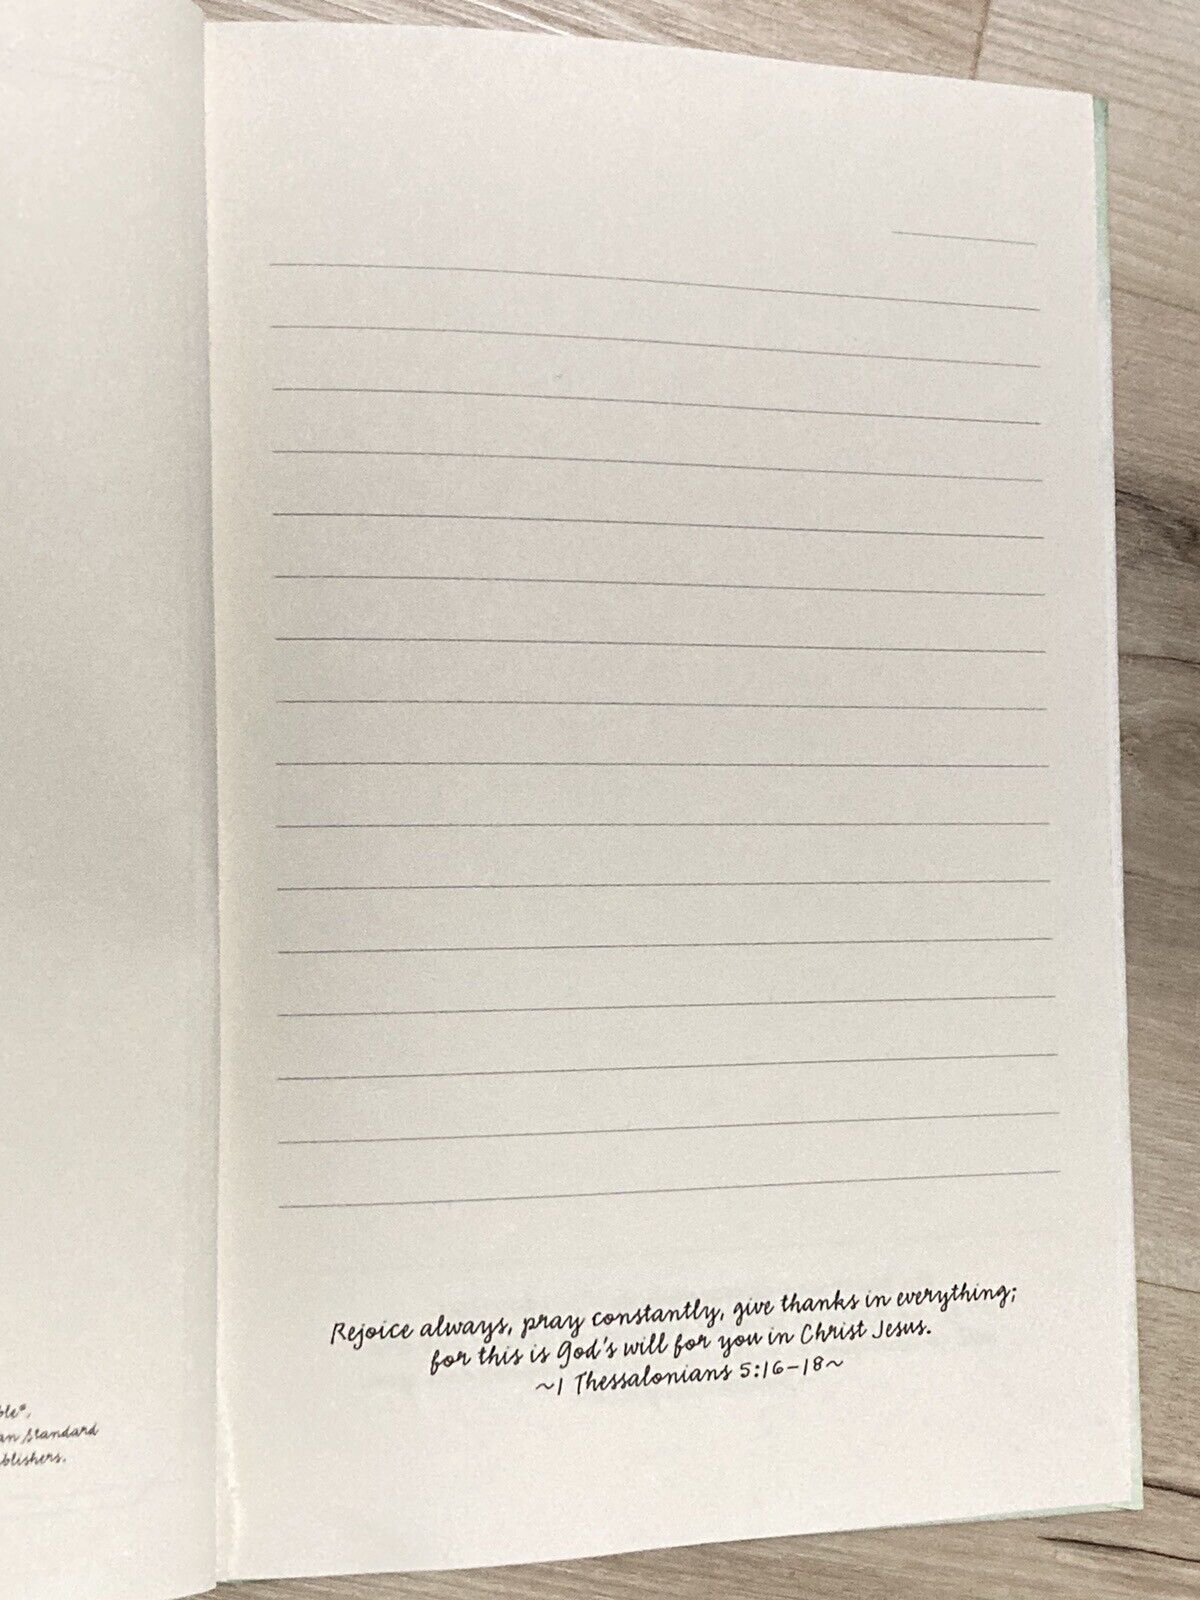 ble®,
an Standard
blishers.
Rejoice always, pray constantly, give thanks in everything;
for this is God's will for you in Christ Jesus.
~1 Thessalonians 5:16-18~